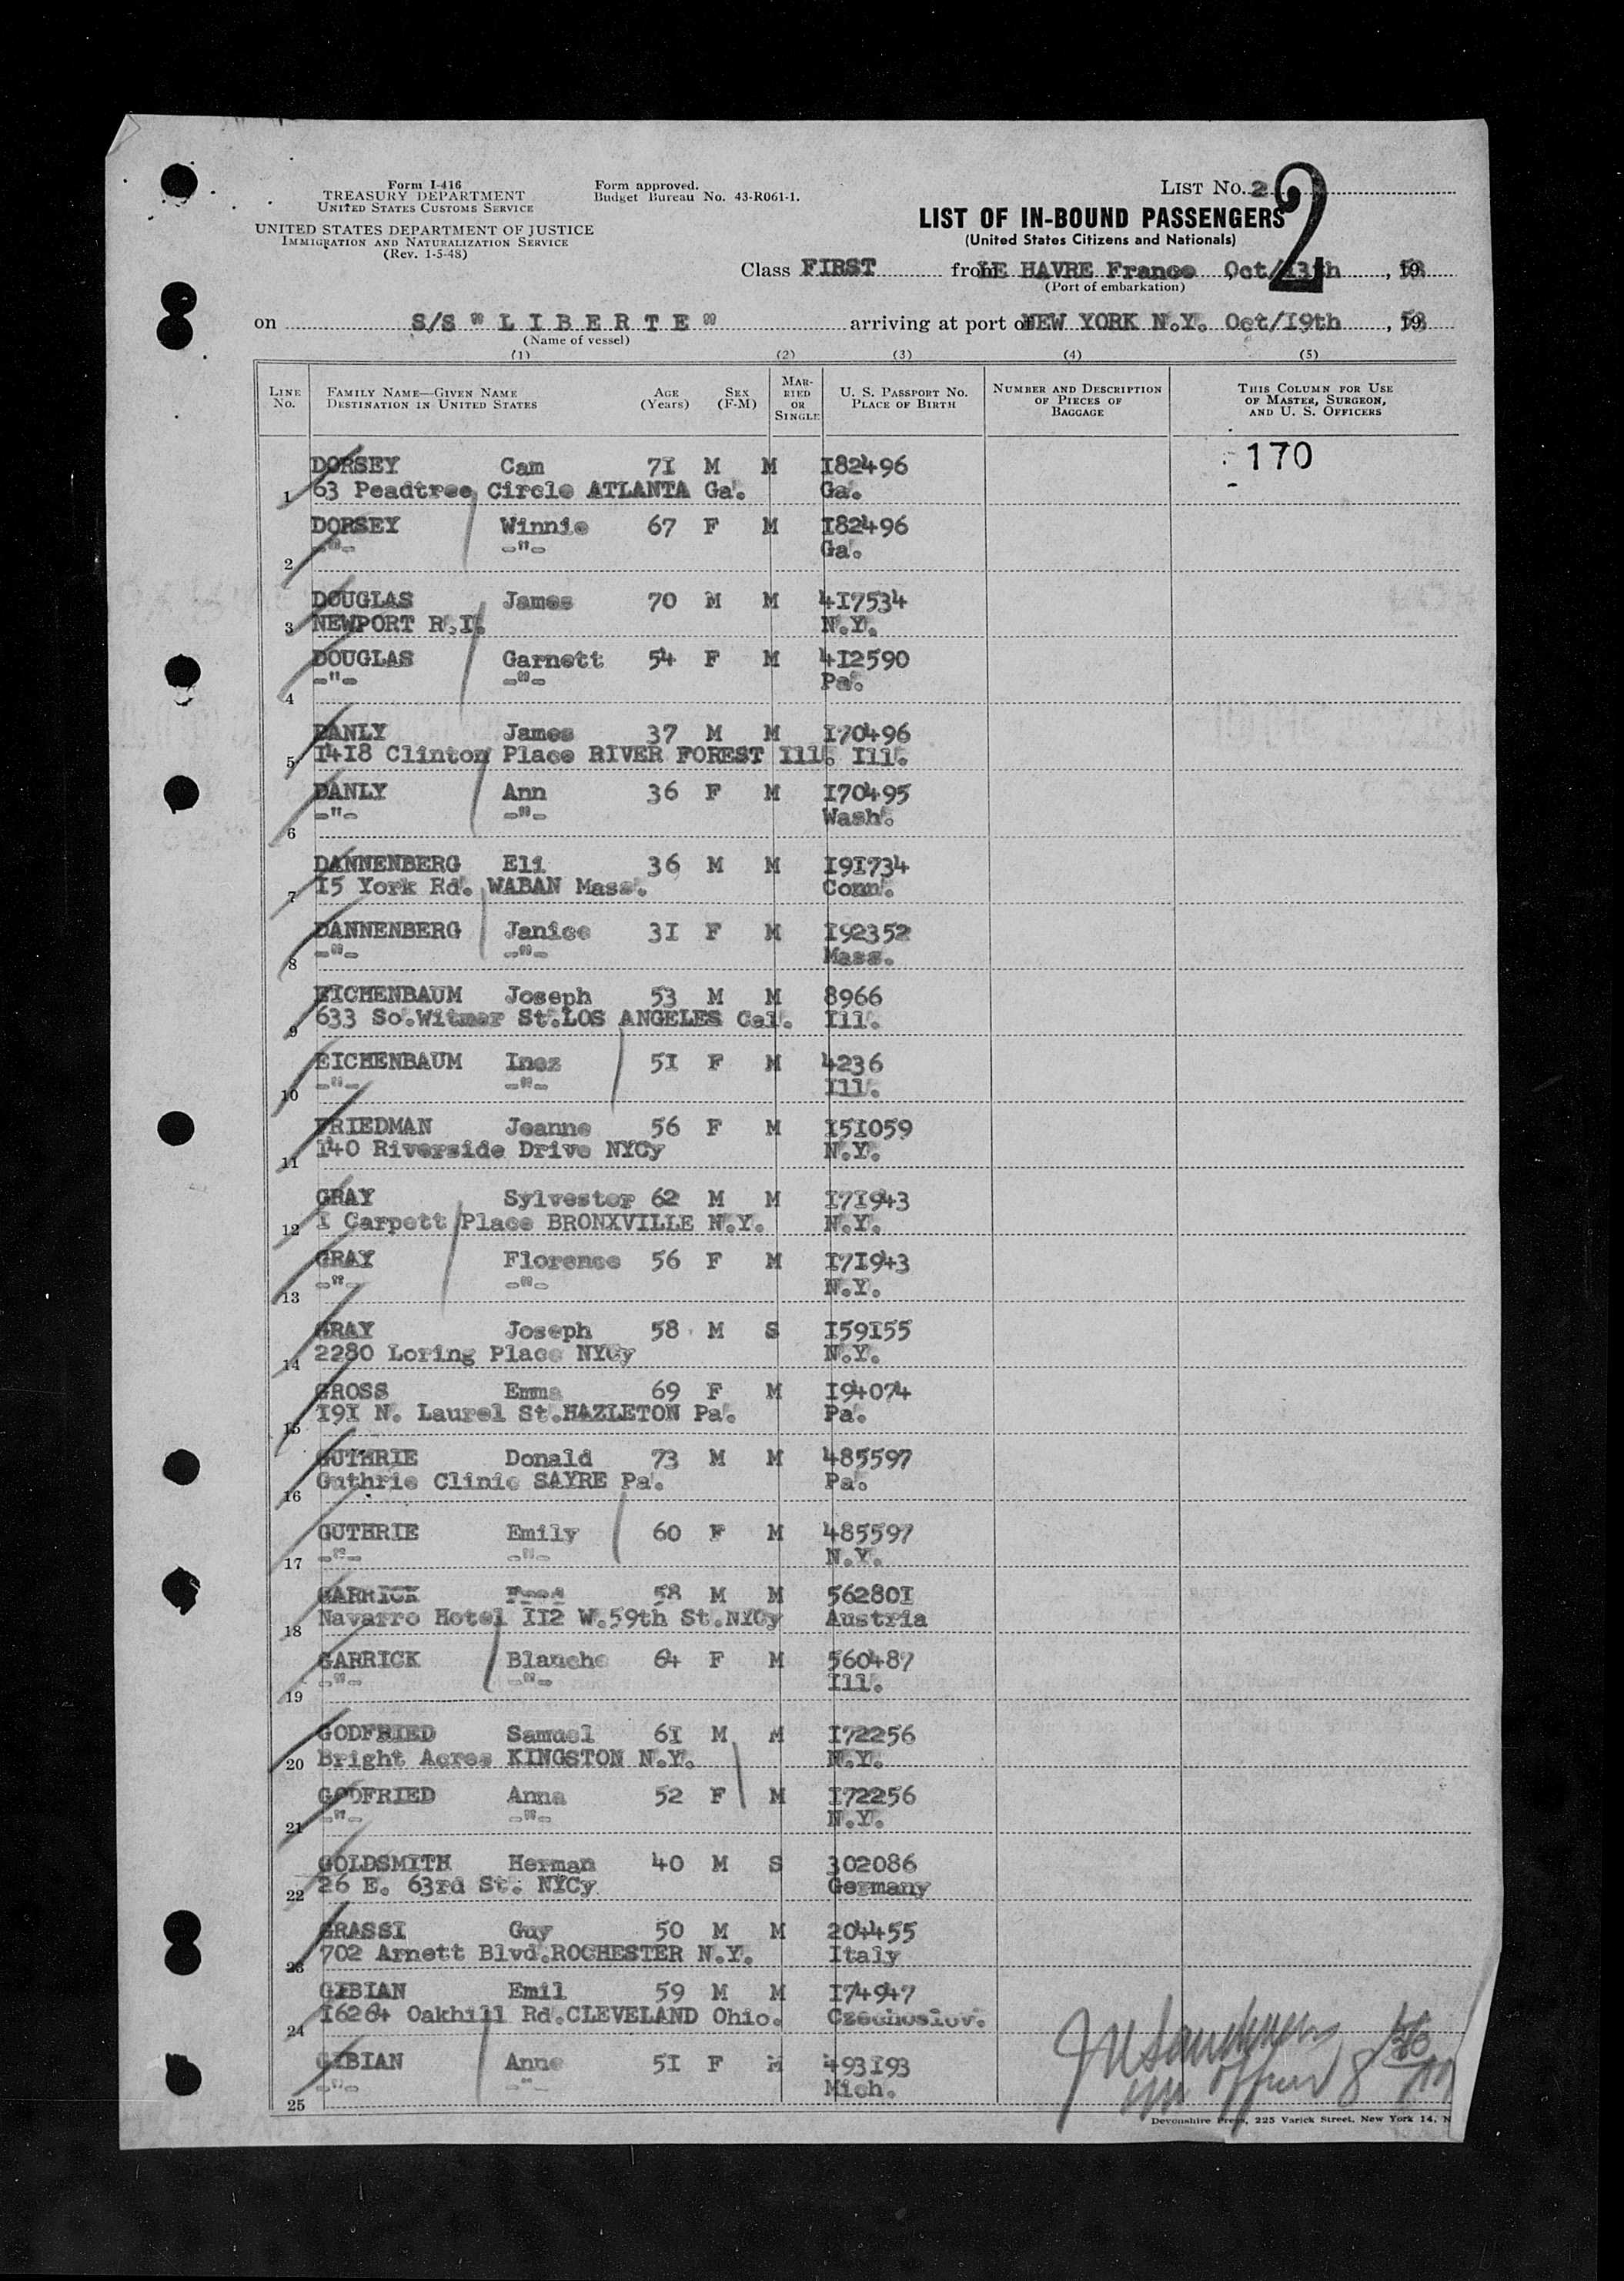 Form I-416
TREASURY DEPARTMENT
UNITED STATES CUSTOMS SERVICE
UNITED STATES DEPARTMENT OF JUSTICE
IMMIGRATION AND NATURALIZATION SERVICE
(Rev. 1-5-48)
Form approved.
Budget Bureau No. 43-R061-1.
LIST NO. 2
2
LIST OF IN-BOUND PASSENGERS
(United States Citizens and Nationals)
Class FIRST from LE HAVRE France Oct/13th, 19
(Port of embarkation)
on S/S " L I B E R T E " arriving at port of NEW YORK N.Y. Oct/19th, 19
(Name of vessel)
(1) (2) (3) (4) (5)
LINE NO. FAMILY NAME—GIVEN NAME DESTINATION IN UNITED STATES AGE (Years) SEX (F-M) MARRIED OR SINGLE U. S. PASSPORT NO. PLACE OF BIRTH NUMBER AND DESCRIPTION OF PIECES OF BAGGAGE THIS COLUMN FOR USE OF MASTER, SURGEON, AND U. S. OFFICERS
170
DORSEY Cam 7I M M I82496
1 63 Peadtree Circle ATLANTA Ga. Ga.
DORSEY Winnie 67 F M I82496
2 -"- -"- Ga.
DOUGLAS James 70 M M 4I7534
3 NEWPORT R.I. N.Y.
DOUGLAS Garnett 54 F M 4I2590
4 -"- -"- Pa.
DANLY James 37 M M I70496
5 I4I8 Clinton Place RIVER FOREST Ill. Ill.
DANLY Ann 36 F M I70495
6 -"- -"- Wash.
DANNENBERG Eli 36 M M I9I734
7 I5 York Rd. WABAN Mass. Conn.
DANNENBERG Janice 3I F M I92352
8 -"- -"- Mass.
EICHENBAUM Joseph 53 M M 8966
9 633 So.Witmer St.LOS ANGELES Cal. Ill.
EICHENBAUM Inez 5I F M 4236
10 -"- -"- Ill.
FRIEDMAN Jeanne 56 F M I5I059
11 I40 Riverside Drive NYCy N.Y.
GRAY Sylvester 62 M M I7I943
12 I Carpett Place BRONXVILLE N.Y. N.Y.
GRAY Florence 56 F M I7I943
13 -"- -"- N.Y.
GRAY Joseph 58 M S I59I55
14 2280 Loring Place NYCy N.Y.
GROSS Emma 69 F M I94074
15 I9I N. Laurel St.HAZLETON Pa. Pa.
GUTHRIE Donald 73 M M 485597
16 Guthrie Clinic SAYRE Pa. Pa.
GUTHRIE Emily 60 F M 485597
17 -"- -"- N.Y.
GARRICK Fred 58 M M 56280I
18 Navarro Hotel II2 W.59th St.NYCy Austria
GARRICK Blanche 64 F M 560487
19 -"- -"- Ill.
GODFRIED Samuel 6I M M I72256
20 Bright Acres KINGSTON N.Y. N.Y.
GODFRIED Anna 52 F M I72256
21 -"- -"- N.Y.
GOLDSMITH Herman 40 M S 302086
22 26 E. 63rd St. NYCy Germany
GRASSI Guy 50 M M 204455
23 702 Arnett Blvd.ROCHESTER N.Y. Italy
GIBIAN Emil 59 M M I74947
24 I6264 Oakhill Rd.CLEVELAND Ohio. Czechoslov.
GIBIAN Anne 5I F M 493I93
25 -"- -"- Mich.
Devonshire Press, 225 Varick Street, New York 14, N